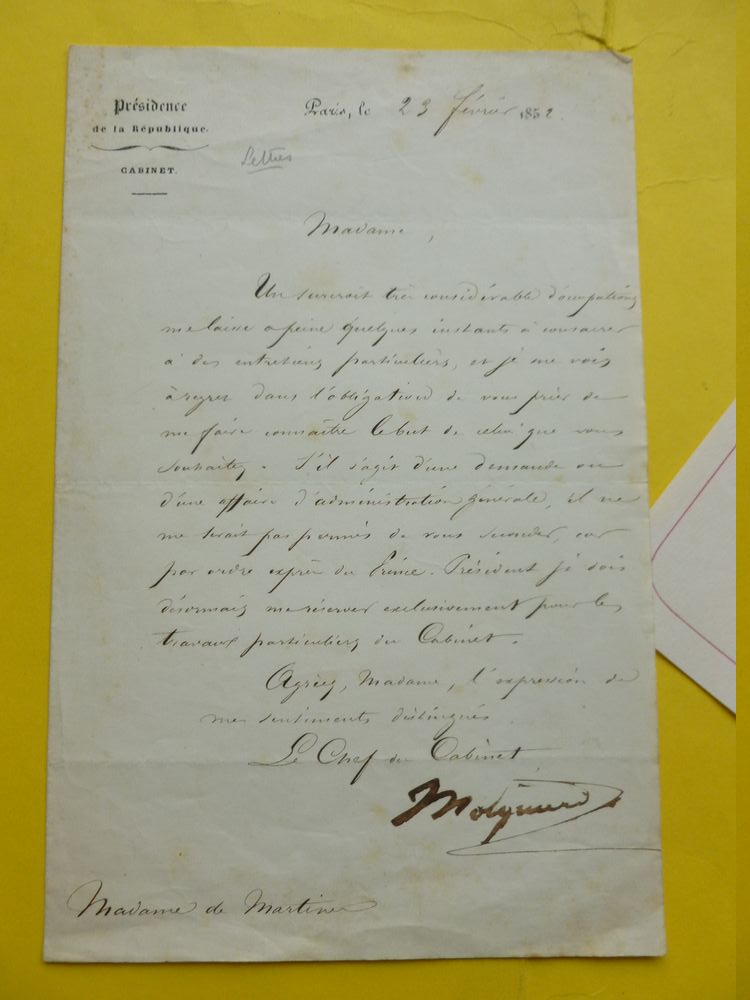 Présidence
de la République.
CABINET.
Paris, le 23 février 1852
Lettres
Madame,
Un surcroit très considérable d'occupations
me laisse a peine quelques instants à consacrer
à des entretiens particuliers, et je me vois
à regret dans l'obligation de vous prier de
me faire connaître le but de celui que vous
souhaitez. S'il s'agit d'une demande ou
d'une affaire d'administration générale, il ne
me serait pas permis de vous seconder, car
par ordre exprès du Prince-Président je dois
désormais me réserver exclusivement pour les
travaux particuliers du Cabinet.
Agréez, Madame, l'expression de
mes sentiments distingués
Le Chef du Cabinet,
Mocquard
Madame de